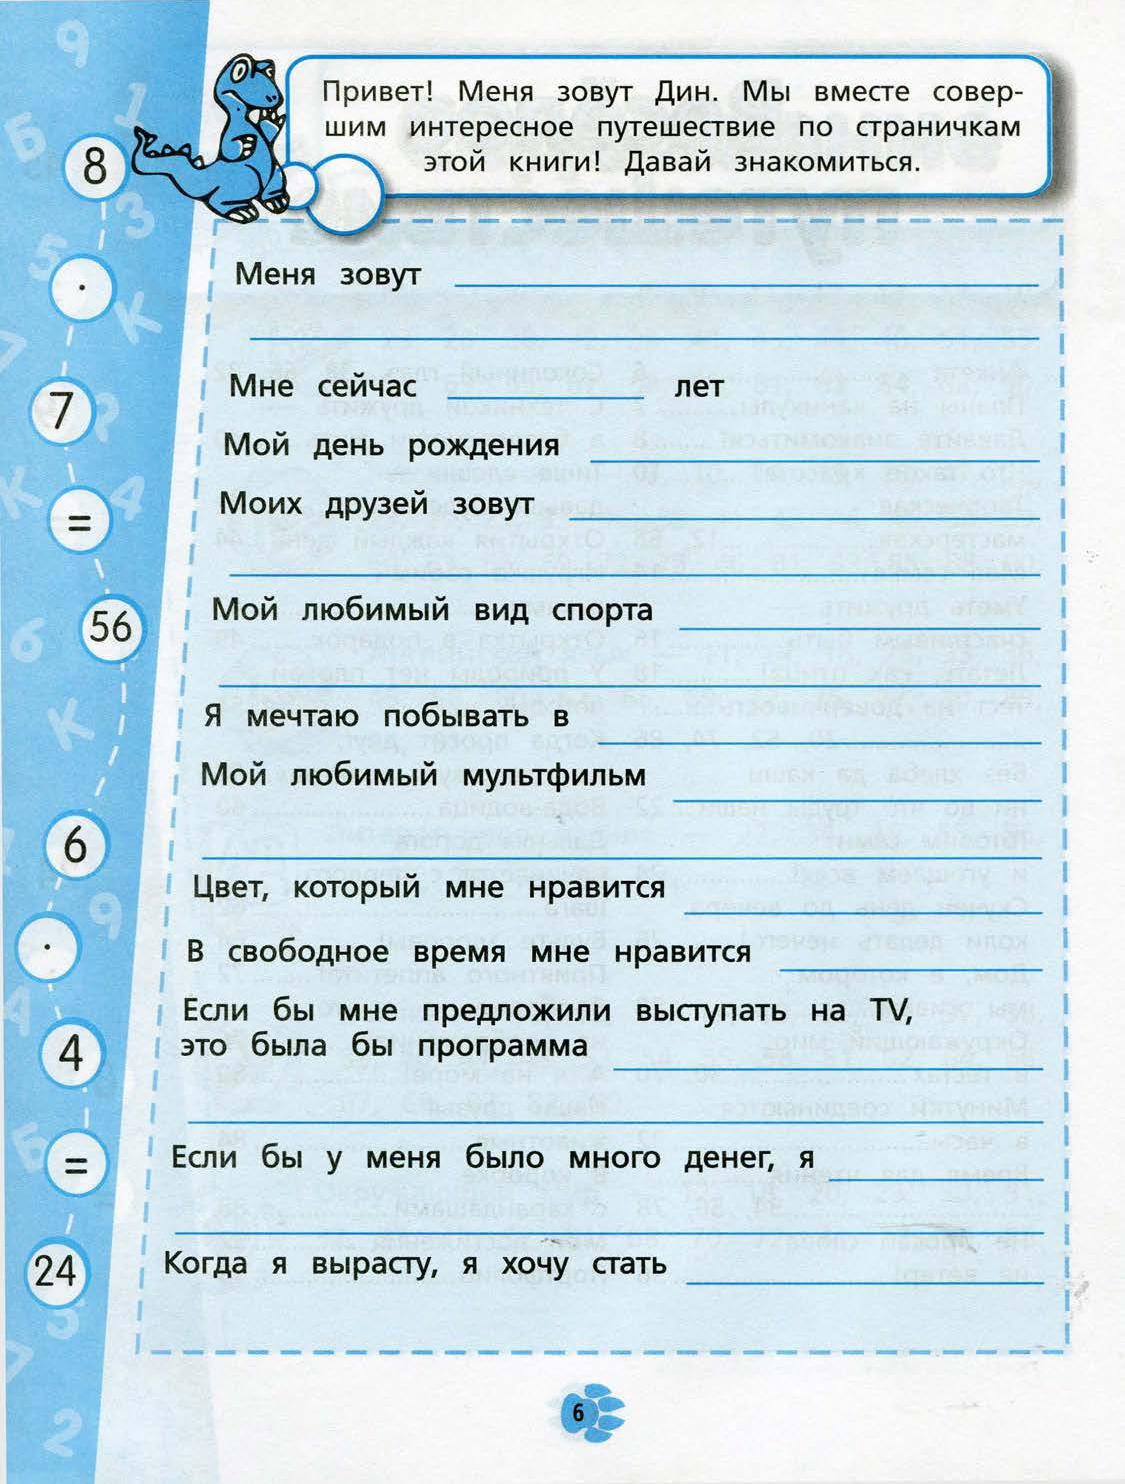 Привет! Меня зовут Дин. Мы вместе совер-
шим интересное путешествие по страничкам
этой книги! Давай знакомиться.
8
·
7
=
56
6
·
4
=
24
Меня зовут
Мне сейчас лет
Мой день рождения
Моих друзей зовут
Мой любимый вид спорта
Я мечтаю побывать в
Мой любимый мультфильм
Цвет, который мне нравится
В свободное время мне нравится
Если бы мне предложили выступать на TV,
это была бы программа
Если бы у меня было много денег, я
Когда я вырасту, я хочу стать
6